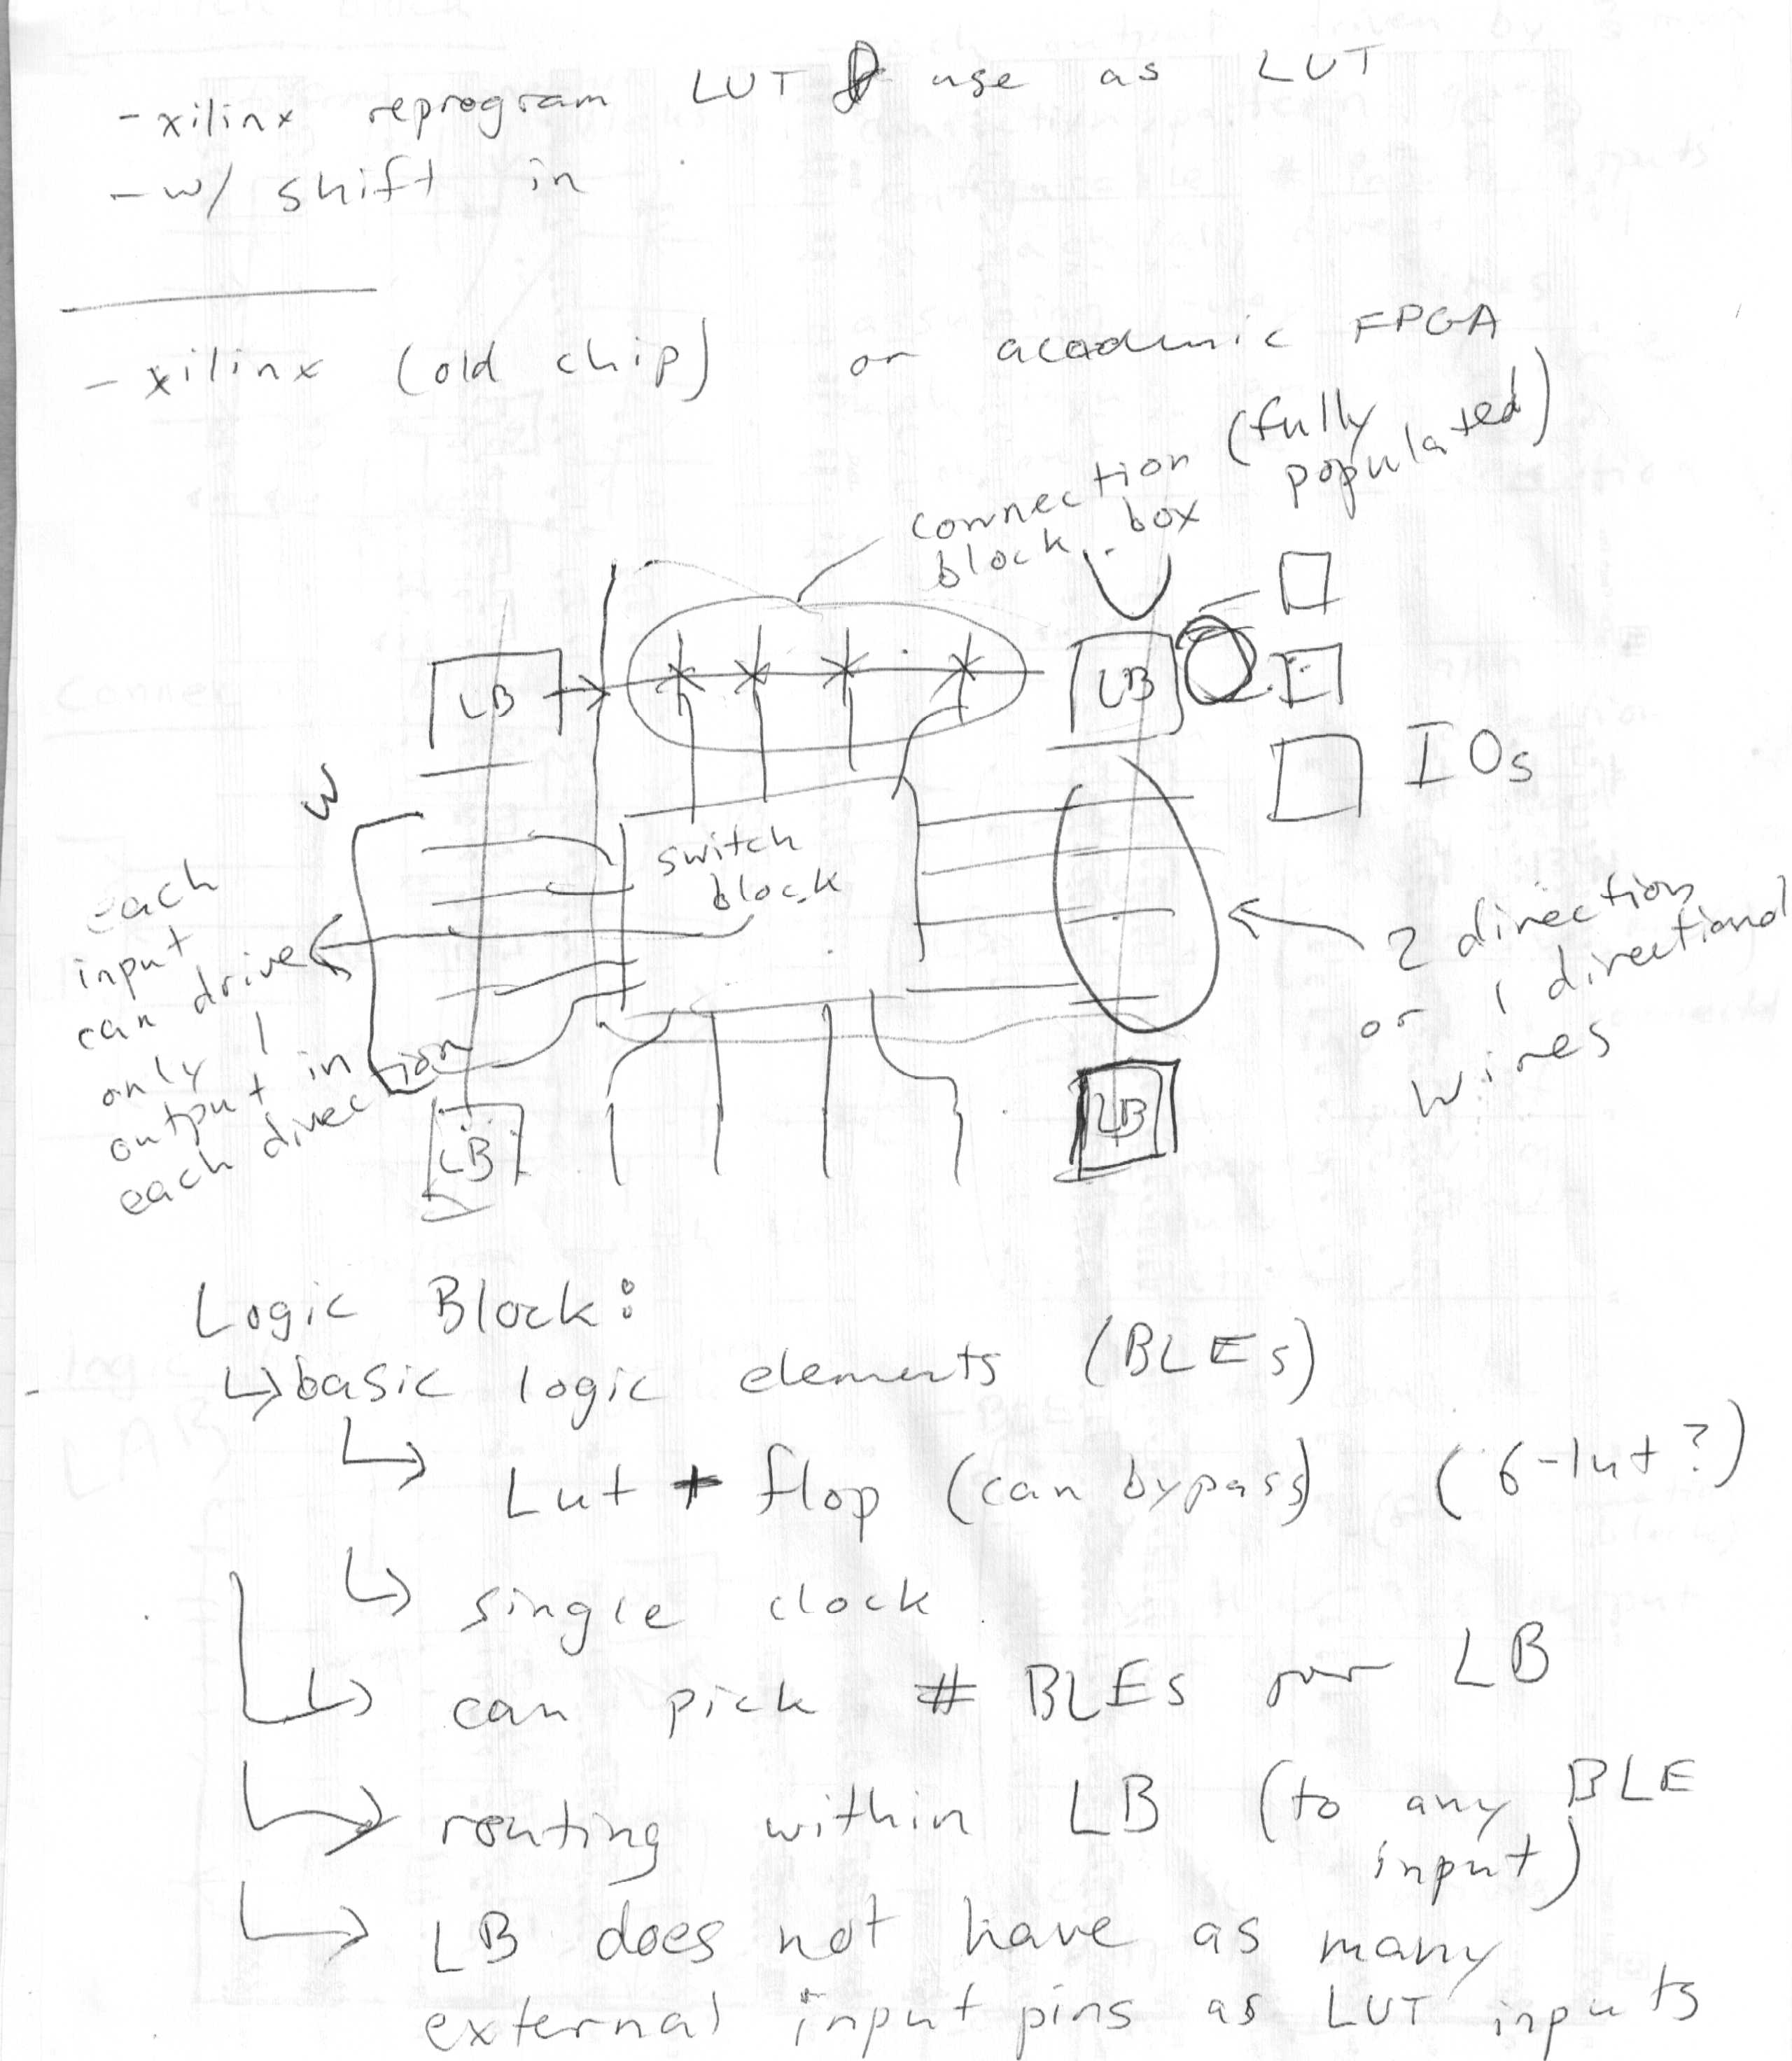 - xilinx reprogram LUT & use as LUT
- w/ shift in
- xilinx (old chip) or academic FPGA
connection (fully
block box populated)
LB
LB
IOs
W
switch
block
each
input
can drive
only 1
output in
each direction
2 direction
or 1 directional
wires
LB
LB
Logic Block:
↳ basic logic elements (BLEs)
↳ Lut + flop (can bypass) (6-lut?)
↳ single clock
↳ can pick # BLEs per LB
↳ routing within LB (to any BLE
input)
↳ LB does not have as many
external input pins as LUT inputs